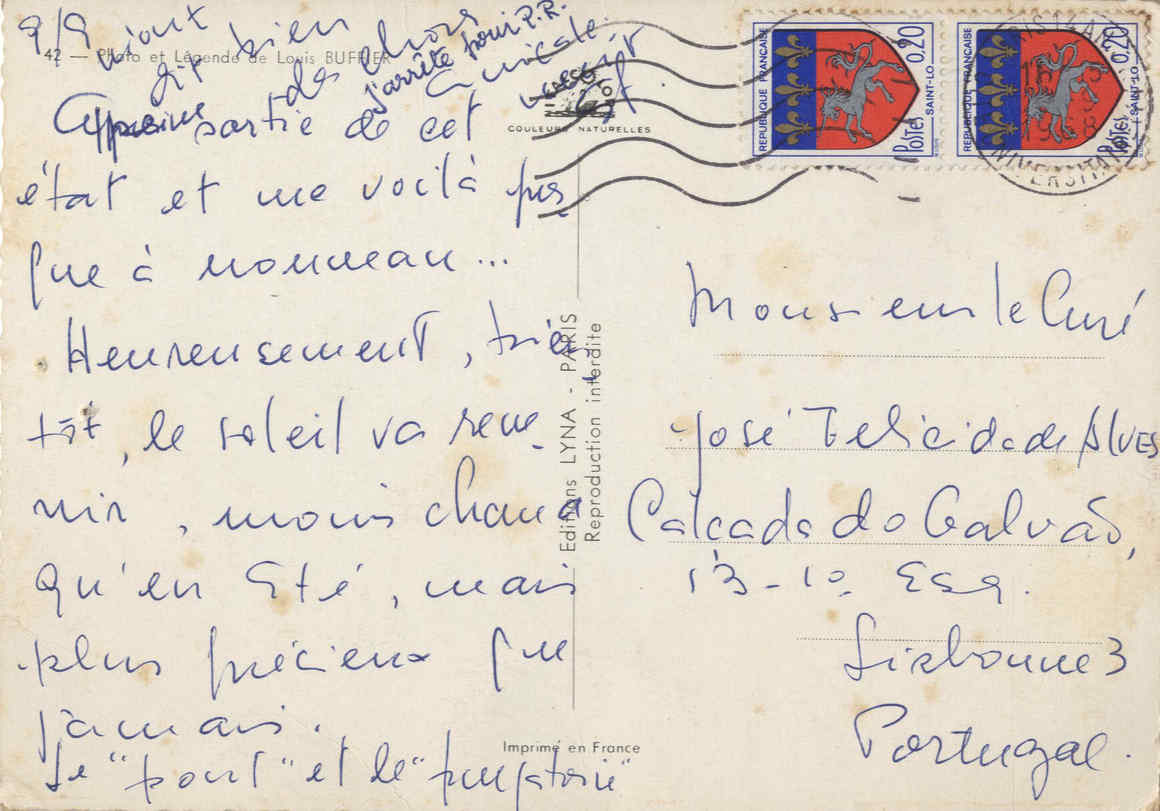 9/9
42 — Photo et Légende de Louis BUFFIER
bien
de choses
j'arrête pour P.R.
Amicale
A peine sortie de cet
état et me voilà pres
que à nouveau...
Heureusement, très
tôt, le soleil va reve
nir, moins chaud
qu'en Eté, mais
plus précieux que
jamais.
Le "pont" et le "purgatoire"
COULEURS NATURELLES
Editions LYNA - PARIS
Reproduction interdite
Imprimé en France
REPUBLIQUE FRANÇAISE
0,20
POSTES
SAINT-LO
REPUBLIQUE FRANÇAISE
0,20
POSTES
SAINT-LO
Monsieur le Curé
José Felicidade Alves
Calçada do Galvão,
13-1º Esq.
Lisbonne 3
Portugal.